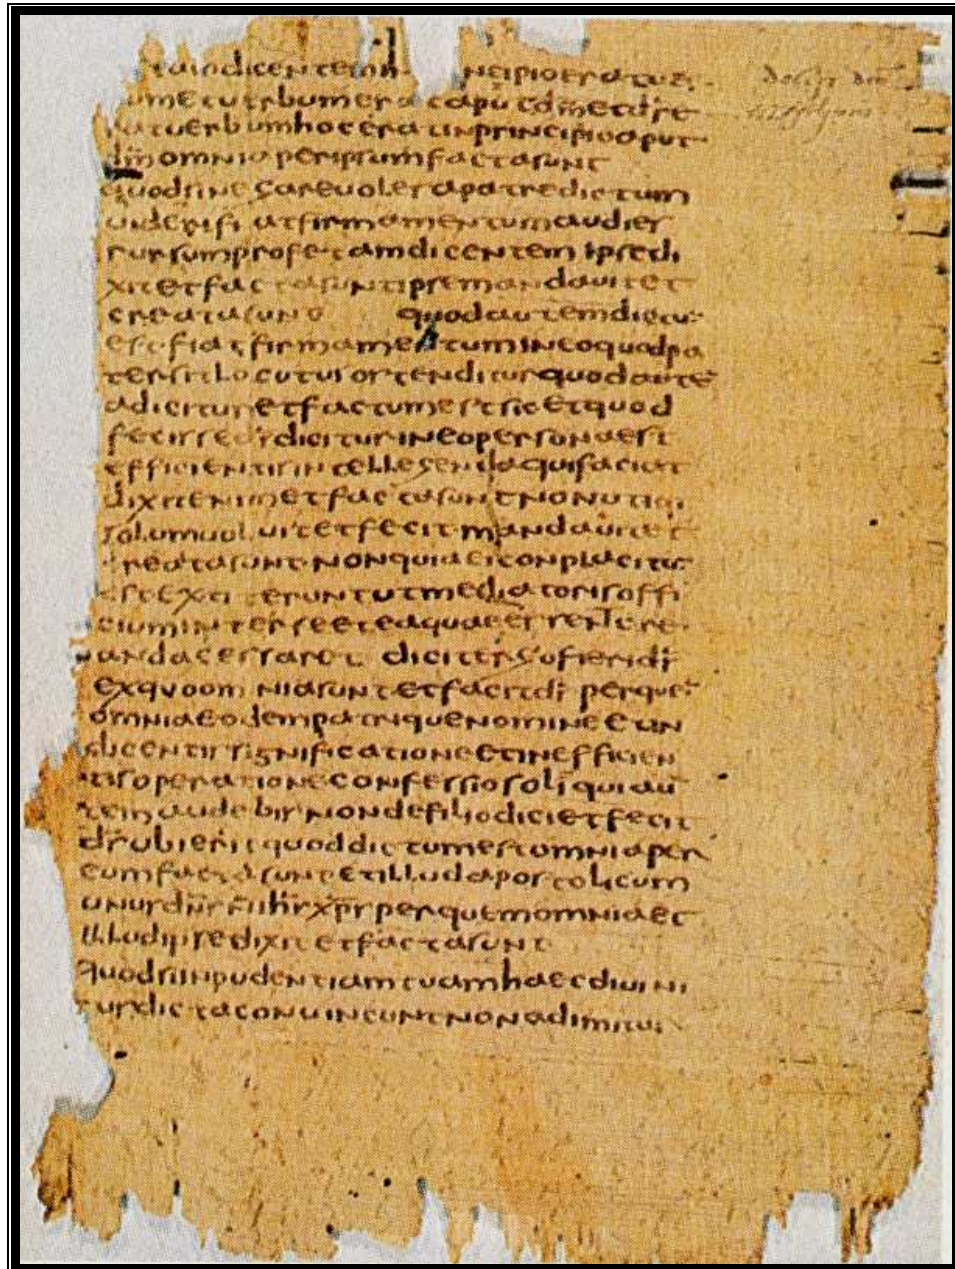 uaiodicentem in principio eratuer
umetuerbumeratapud dmetds e
ratuerbumhoceratinprincipioaput
dm̄omniaperipsumfactasunt
quodsinegareuolesapatredictum
undesifiatfirmamentumaudies
rursumprofetamdicentemipsedi
xitetfactasuntipsemandauitet
creatasunt quodautemdictu
estfiatfirmamentumineoquodpa
tersitlocutusostenditurquodautē
adicituretfactumestsicetquod
fecisseds̄diciturineopersonaest
efficientisintellegendaquifaciat
dixitenimetfactasuntnonutiqu
solumuoluitetfecitmandauitet
creatasuntnonquiaeiconplacitū
estextiteruntutmediatorisoffi
ciuminterseeteaquaeessentcre
andacessaret dicitergofierids̄
exquoomniasuntetfacitds̄ perquē
omniaeodempatriquenomineetin
dicentissignificationeetinefficien
tisoperationeconfessiosoliquiau
temaudebisnondefiliodicietfecit
ds̄ubieritquoddictumestomniaper
eumfactasuntetilludapostolicum
unusdn̄sn̄ihs̄xps̄perquemomniaet
illudipsedixitetfactasunt
quodsiinpudentiamtuamhaecdiuini
tusdictaconuincuntnonadimitur